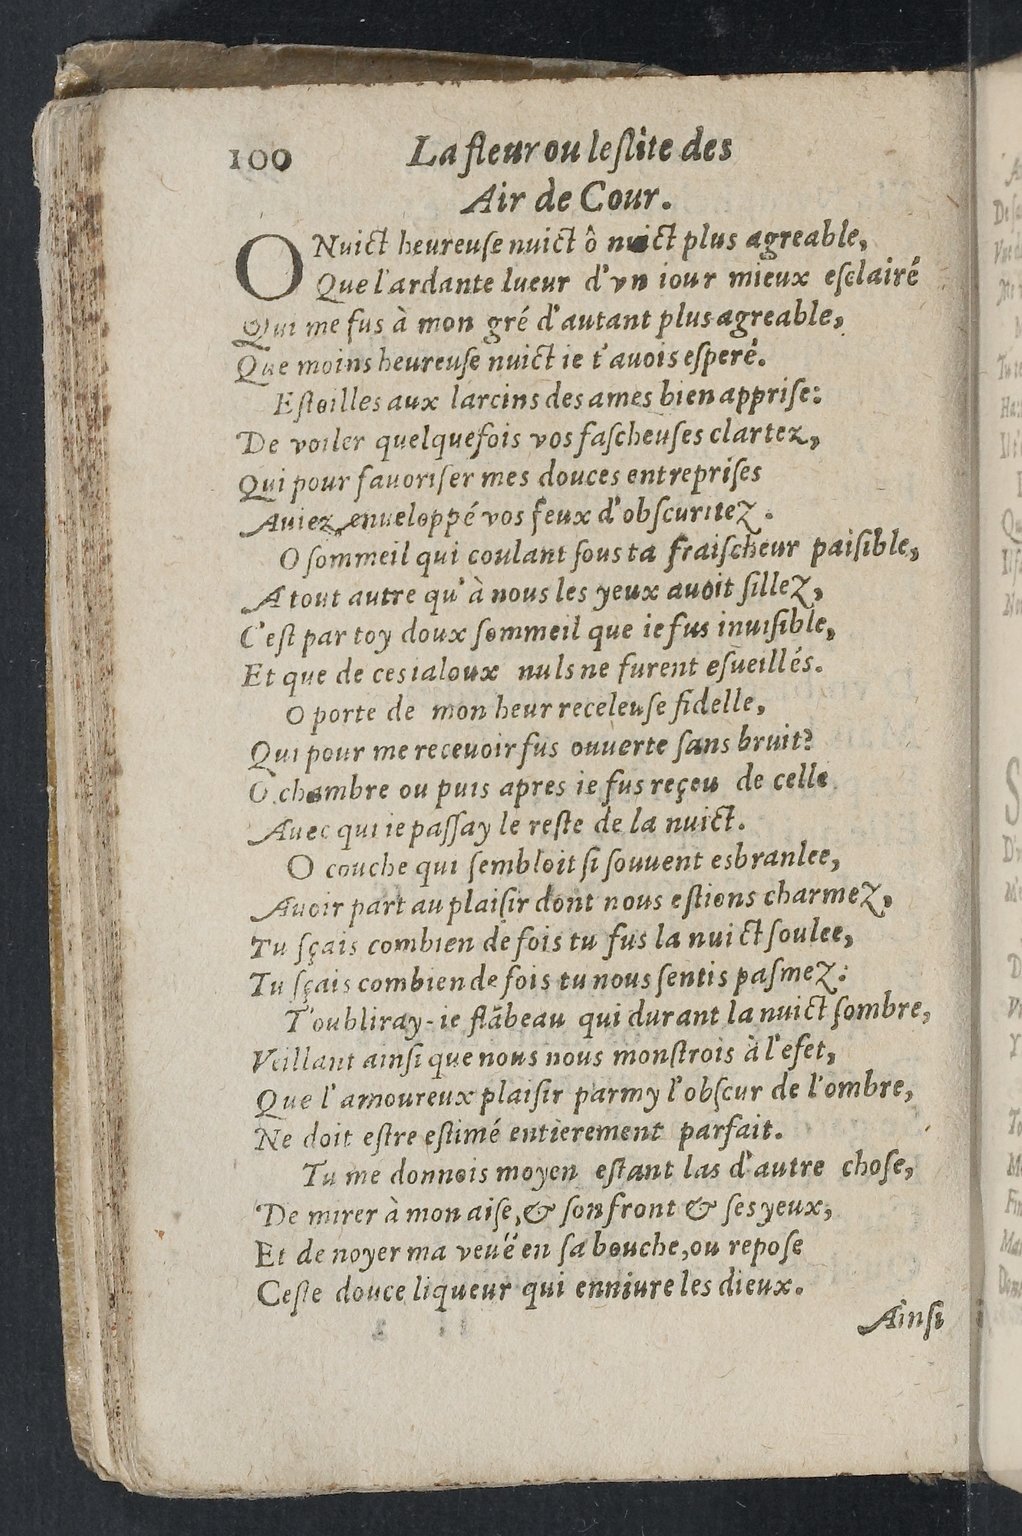 100
La fleur ou leſlite des
Air de Cour.
O Nuict heureuſe nuict ô nuict plus agreable,
Que l'ardante lueur d'vn iour mieux eſclairé
Qui me fus à mon gré d'autant plus agreable,
Que moins heureuſe nuict ie t'auois eſperé.
Eſtoilles aux larcins des ames bien appriſe:
De voiler quelquefois vos faſcheuſes clartez,
Qui pour fauoriſer mes douces entrepriſes
Auiez enueloppé vos feux d'obſcuritez.
O ſommeil qui coulant ſous ta fraiſcheur paiſible,
A tout autre qu'à nous les yeux auoit ſillez,
C'eſt par toy doux ſommeil que ie fus inuiſible,
Et que de ces ialoux nuls ne furent eſueillés.
O porte de mon heur receleuſe fidelle,
Qui pour me receuoir fus ouuerte ſans bruit?
O chambre ou puis apres ie fus reçeu de celle
Auec qui ie paſſay le reſte de la nuict.
O couche qui ſembloit ſi ſouuent esbranlee,
Auoir part au plaiſir dont nous eſtions charmez,
Tu ſçais combien de fois tu fus la nuict ſoulee,
Tu ſçais combien de fois tu nous ſentis paſmez:
T'oubliray-ie flãbeau qui durant la nuict ſombre,
Veillant ainſi que nous nous monſtrois à l'efet,
Que l'amoureux plaiſir parmy l'obſcur de l'ombre,
Ne doit eſtre eſtimé entierement parfait.
Tu me donnois moyen eſtant las d'autre choſe,
De mirer à mon aiſe, & ſon front & ſes yeux,
Et de noyer ma veuë en ſa bouche, ou repoſe
Ceſte douce liqueur qui enniure les dieux.
Ainſi